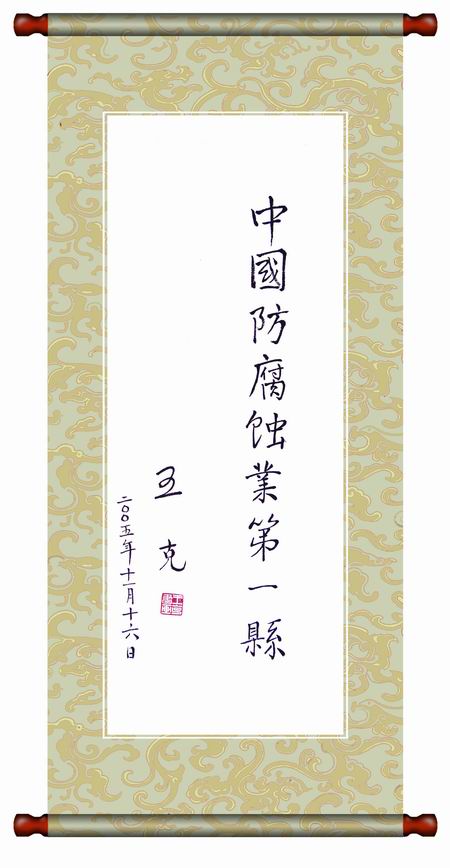 中國防腐蚀業第一縣
王克
二〇〇五年十一月十六日